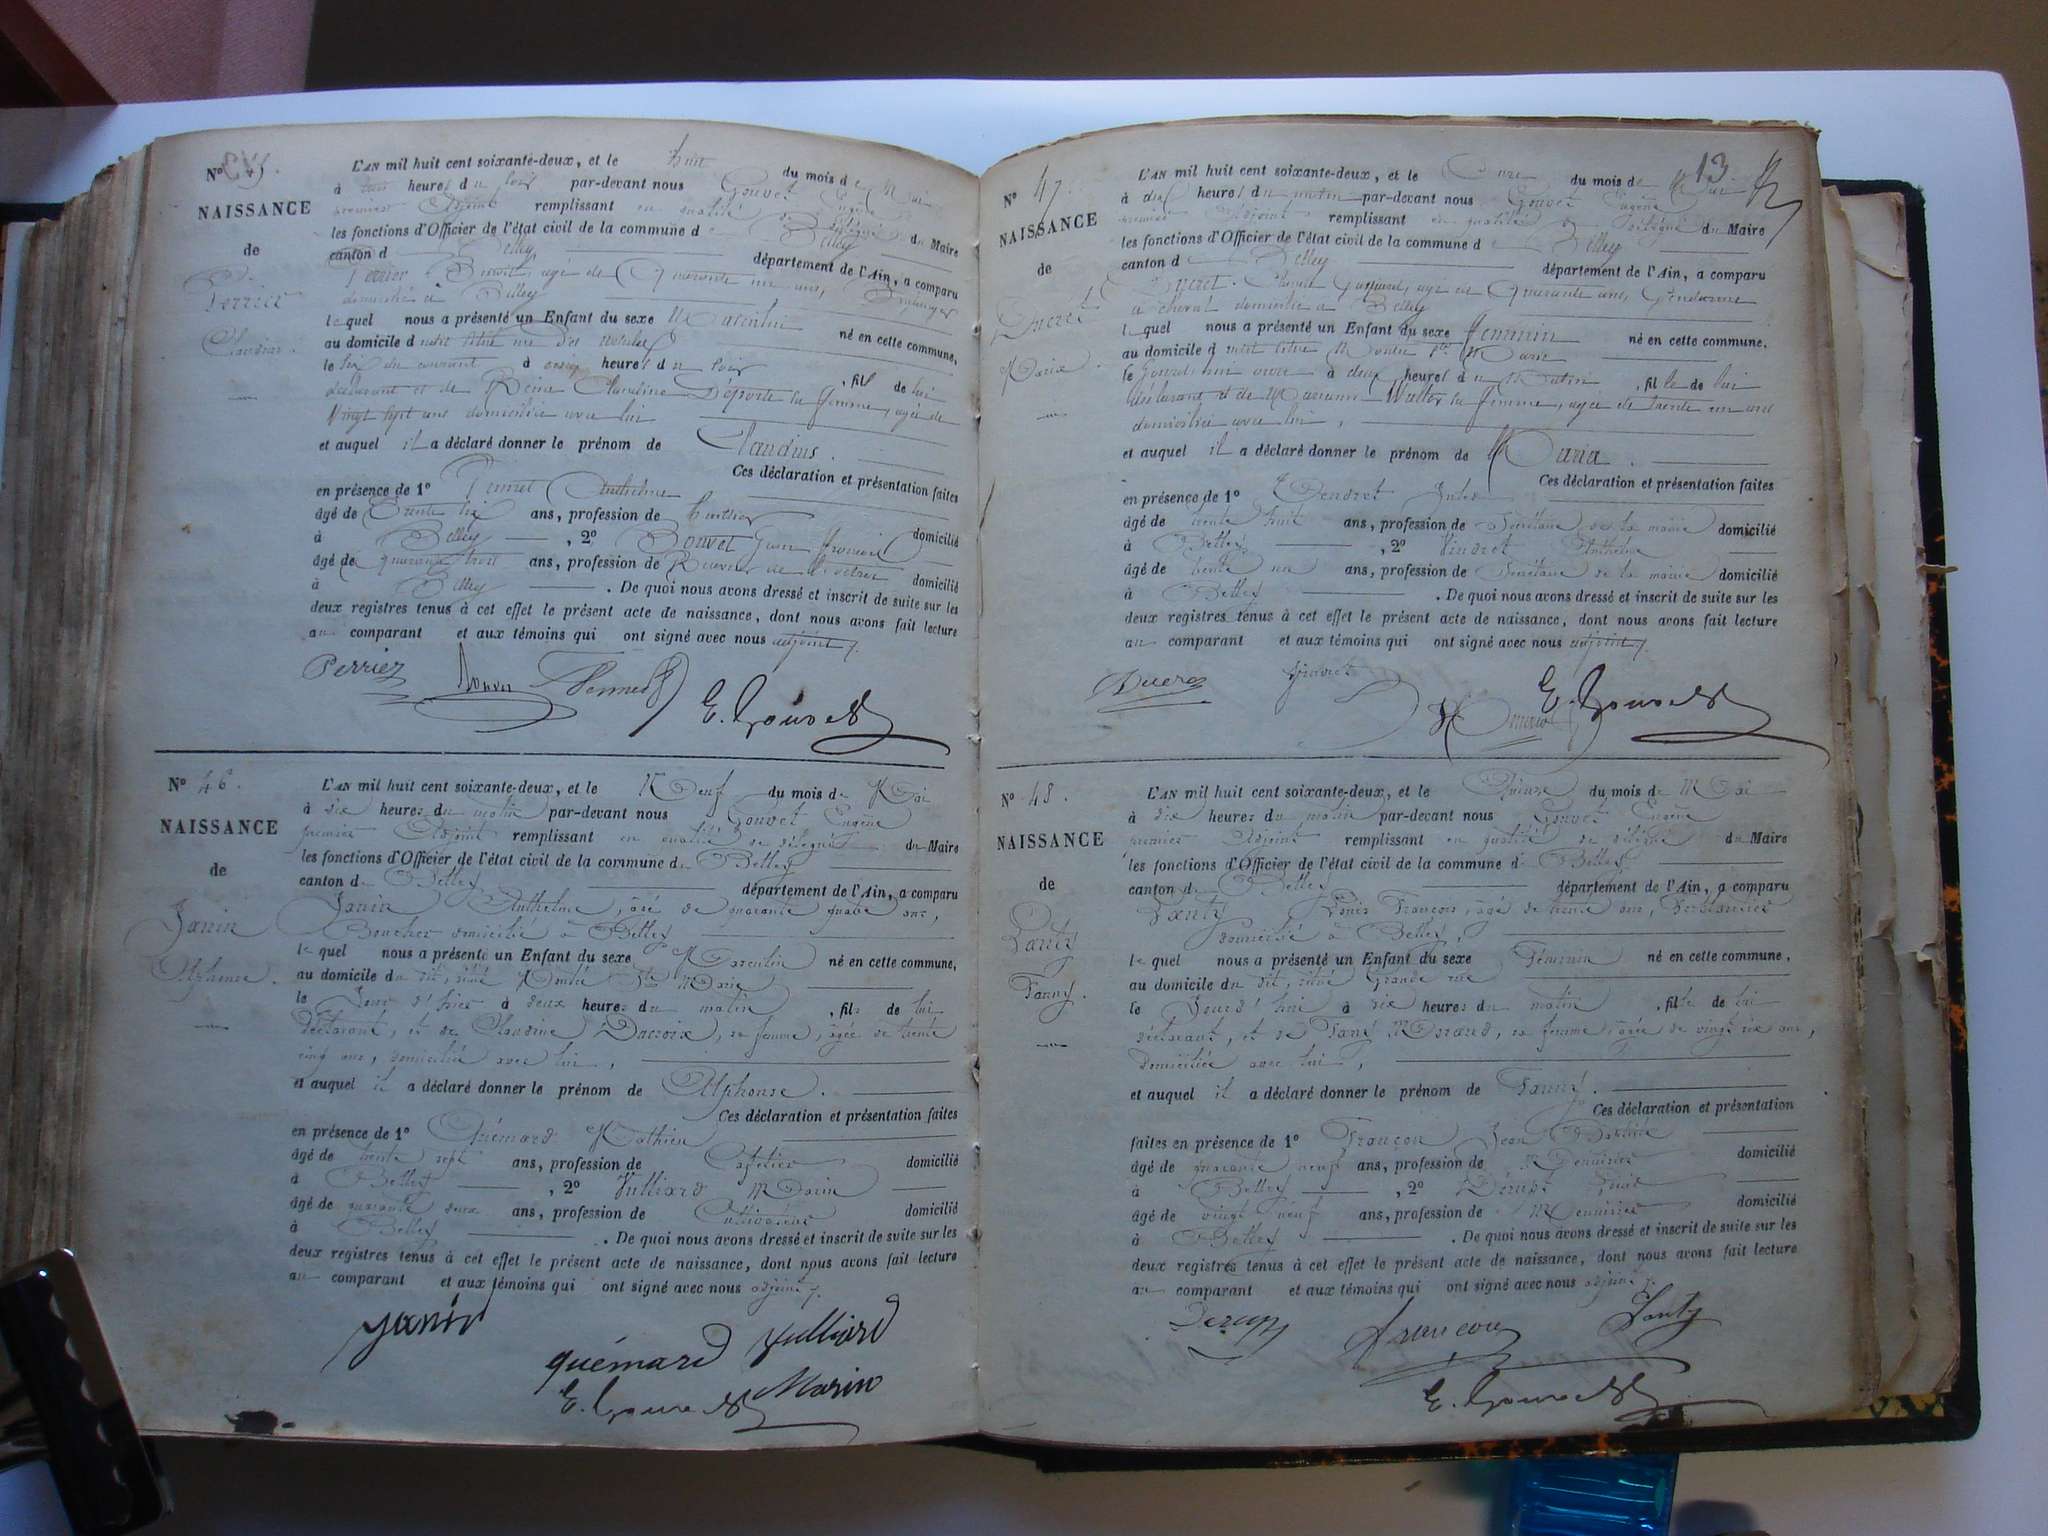 N° 45.
NAISSANCE
de
Perrier
Claudius.
L'AN mil huit cent soixante-deux, et le huit du mois de Mai
à heures du soir par-devant nous Gouvet Eugène
premier Adjoint remplissant en qualité de délégué du Maire
les fonctions d'Officier de l'état civil de la commune d Belley
canton d Belley département de l'Ain, a comparu
Perrier Benoit, agé de Quarante un ans, Boulanger
domicilié à Belley
lequel nous a présenté un Enfant du sexe Masculin né en cette commune,
au domicile d notre titué rue des
le six du courant à onze heures du soir , fils de lui
déclarant et de Reine Claudine Déporte sa femme, agée de
Vingt sept ans domiciliée avec lui
et auquel il a déclaré donner le prénom de Claudius.
Ces déclaration et présentation faites
en présence de 1° Anthelme
âgé de Trente six ans, profession de domicilié
à Belley , 2° Bouvet Jean François
âgé de quarante trois ans, profession de Receveur de l'octroi domicilié
à Belley . De quoi nous avons dressé et inscrit de suite sur les
deux registres tenus à cet effet le présent acte de naissance, dont nous avons fait lecture
au comparant et aux témoins qui ont signé avec nous adjoint
Perrier Bouvet E. Gouvet
N° 46.
NAISSANCE
de
Janin
Alphonse.
L'AN mil huit cent soixante-deux, et le Neuf du mois de Mai
à dix heures du matin par-devant nous Gouvet Eugène
premier Adjoint remplissant en qualité de délégué du Maire
les fonctions d'Officier de l'état civil de la commune de Belley
canton de Belley département de l'Ain, a comparu
Janin Anthelme, âgé de quarante quatre ans,
Boucher domicilié à Belley
lequel nous a présenté un Enfant du sexe Masculin né en cette commune,
au domicile du dit, situé Montée Ste Marie
le Jour d'hier à deux heures du matin , fils de lui
déclarant, et de Claudine Dacroix, sa femme, âgée de trente
cinq ans, domiciliée avec lui,
et auquel il a déclaré donner le prénom de Alphonse.
Ces déclaration et présentation faites
en présence de 1° Quémard Mathieu
âgé de trente sept ans, profession de Cafetier domicilié
à Belley , 2° Vulliard Marin
âgé de quarante deux ans, profession de Cultivateur domicilié
à Belley . De quoi nous avons dressé et inscrit de suite sur les
deux registres tenus à cet effet le présent acte de naissance, dont nous avons fait lecture
au comparant et aux témoins qui ont signé avec nous adjoint
Janin
Quémard Vulliard
E. Gouvet Marin
13
N° 47.
NAISSANCE
de
Ducret
Maria
L'AN mil huit cent soixante-deux, et le Onze du mois de Mai
à dix heures du matin par-devant nous Gouvet Eugène
premier Adjoint remplissant en qualité de délégué du Maire
les fonctions d'Officier de l'état civil de la commune d Belley
canton d Belley département de l'Ain, a comparu
Ducret agé de Quarante ans, Gendarme
à cheval domicilié à Belley
lequel nous a présenté un Enfant du sexe Féminin né en cette commune.
au domicile d Montée Ste Marie
le à deux heures du Matin , fille de lui
déclarant et de Marianne Walter sa femme, agée de trente un ans
domiciliée avec lui,
et auquel il a déclaré donner le prénom de Maria.
Ces déclaration et présentation faites
en présence de 1° Jules
âgé de trente huit ans, profession de Secrétaire de la mairie domicilié
à Belley , 2° Vindret Anthelme
âgé de trente un ans, profession de Secrétaire de la mairie domicilié
à Belley . De quoi nous avons dressé et inscrit de suite sur les
deux registres tenus à cet effet le présent acte de naissance, dont nous avons fait lecture
au comparant et aux témoins qui ont signé avec nous adjoint
Ducret E. Gouvet
N° 48.
NAISSANCE
de
Lantz
Fanny.
L'AN mil huit cent soixante-deux, et le Quinze du mois de Mai
à dix heures du matin par-devant nous Gouvet Eugène
premier Adjoint remplissant en qualité de délégué du Maire
les fonctions d'Officier de l'état civil de la commune d Belley
canton de Belley département de l'Ain, a comparu
Lantz Louis François, âgé de trente ans, Ferblantier
domicilié à Belley,
lequel nous a présenté un Enfant du sexe Féminin né en cette commune,
au domicile du dit, situé Grande rue
le Jourd'hui à six heures du matin , fille de lui
déclarant, et de Fany Morand, sa femme âgée de vingt six ans,
domiciliée avec lui,
et auquel il a déclaré donner le prénom de Fanny.
Ces déclaration et présentation
faites en présence de 1° Françon Jean Baptiste
âgé de quarante neuf ans, profession de Menuisier domicilié
à Belley , 2°
âgé de vingt neuf ans, profession de Menuisier domicilié
à Belley . De quoi nous avons dressé et inscrit de suite sur les
deux registres tenus à cet effet le présent acte de naissance, dont nous avons fait lecture
au comparant et aux témoins qui ont signé avec nous adjoint
Françon Lantz
E. Gouvet